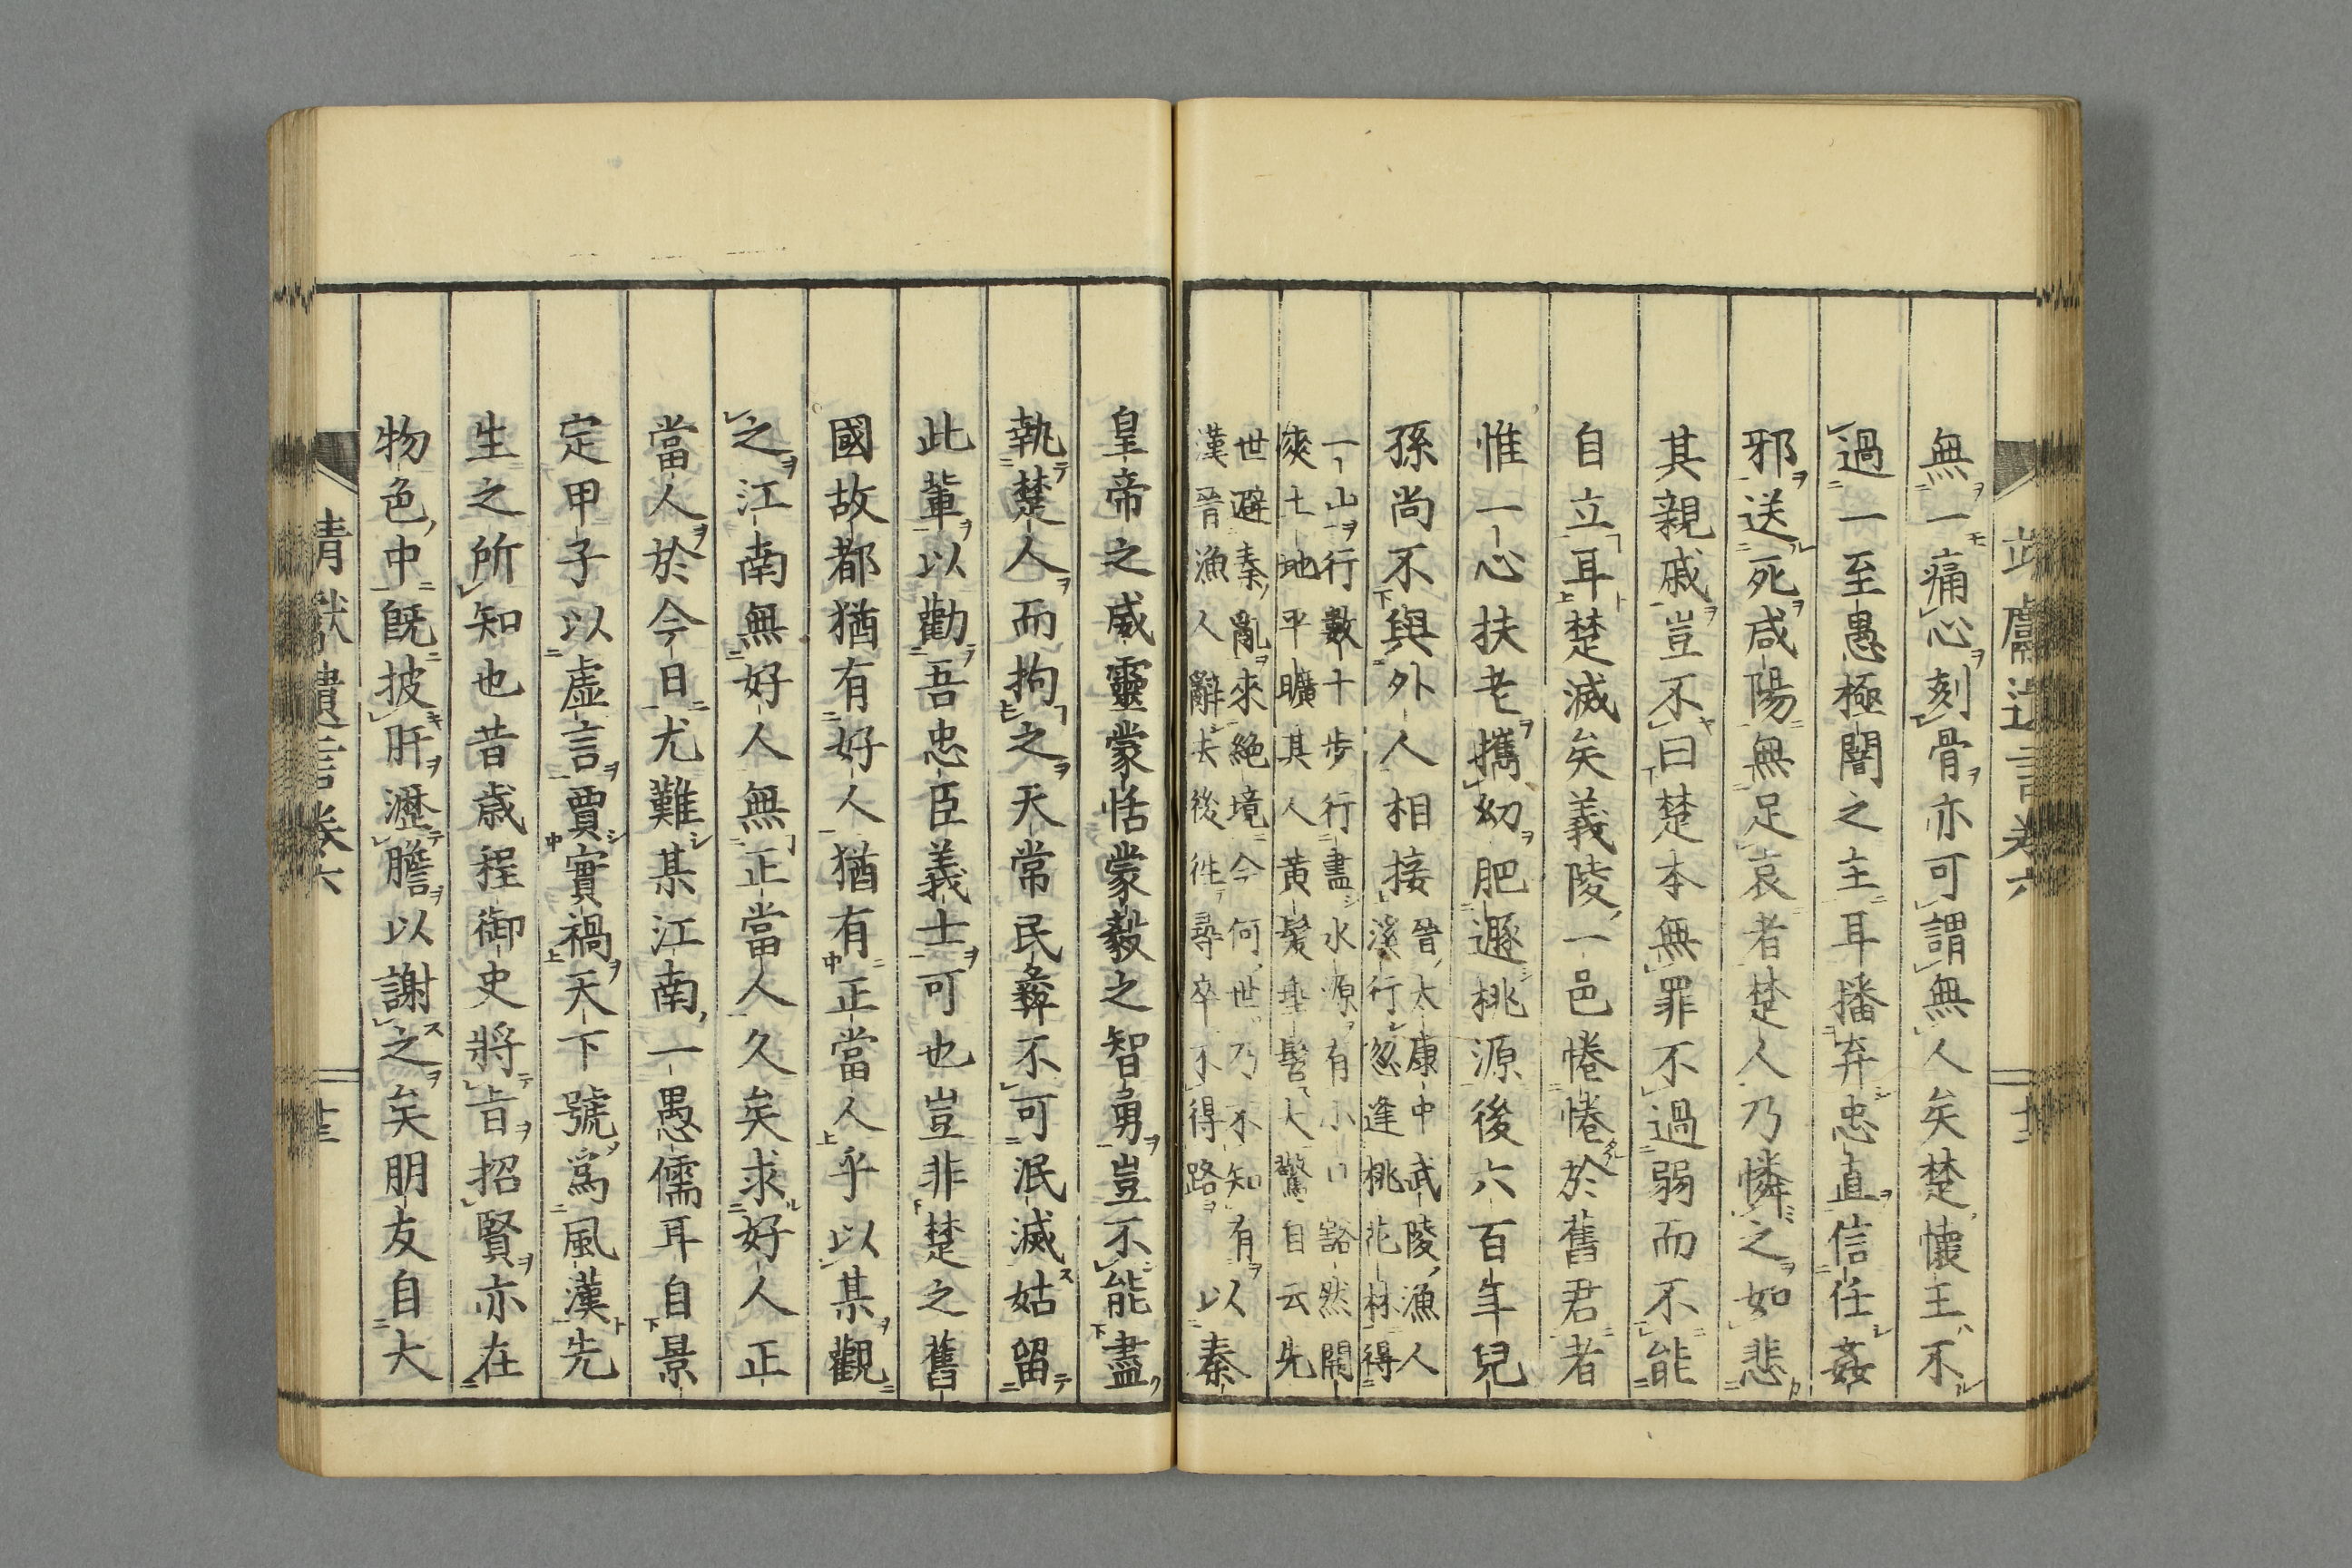 無一痛心刻骨亦可謂無人矣楚懷王不
過一至愚極闇之主耳播弃忠直信任姦
邪送死咸陽無足哀者楚人乃憐之如悲
其親戚豈不曰楚本無罪不過弱而不能
自立耳楚滅矣義陵一邑惓惓於舊君者
惟一心扶老攜幼肥遯桃源後六百年兒
孫尚不與外人相接
晉太康中武陵漁人
溪行忽逢桃花林得
一山行數十步行盡水源有小口豁然開
爽土地平曠其人黃髪垂髫大驚自云先
世避秦亂來絶境今何世乃不知有
漢晉漁人辭去後徃尋卒不得路
以秦
皇帝之威靈蒙恬蒙毅之智勇豈不能盡
執楚人而拘之天常民彝不可泯滅姑留
此輩以勸吾忠臣義士可也豈非楚之舊
國故都猶有好人猶有正當人乎以某觀
之江南無好人無正當人久矣求好人正
當人於今日尤難某江南一愚儒耳自景
定甲子以虛言賈實禍天下號爲風漢先
生之所知也昔歳程御史將旨招賢亦在
物色中旣披肝瀝膽以謝之矣朋友自大
卷六